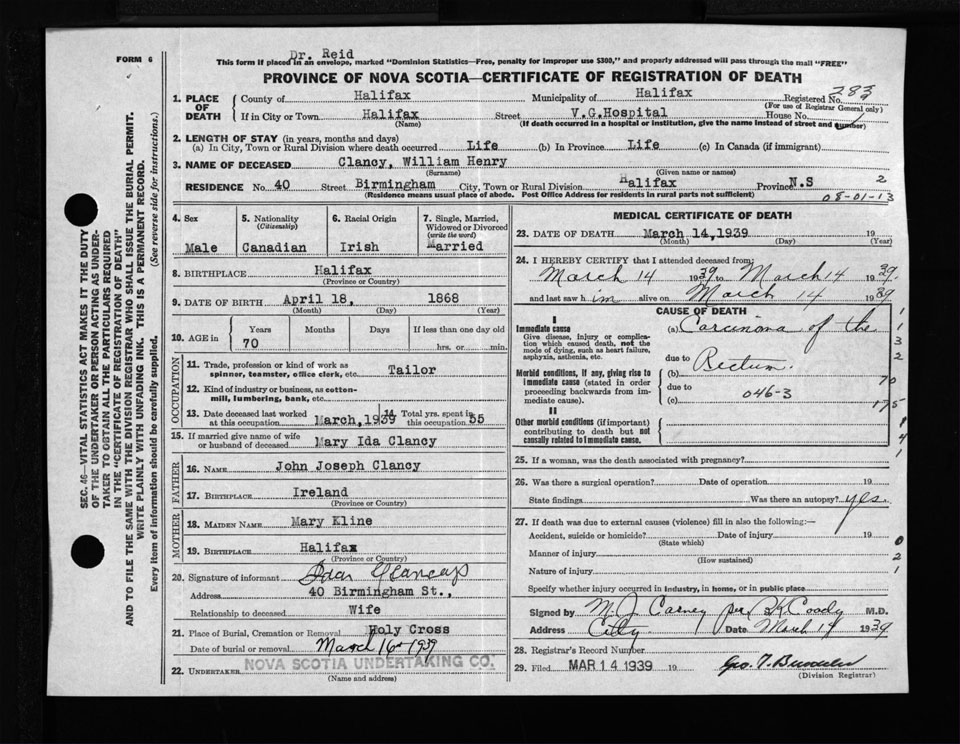 Dr. Reid
FORM 6
This form if placed in an envelope, marked "Dominion Statistics—Free, penalty for improper use $300," and properly addressed will pass through the mail "FREE"
PROVINCE OF NOVA SCOTIA—CERTIFICATE OF REGISTRATION OF DEATH
283
1. PLACE OF DEATH County of Halifax Municipality of Halifax Registered No.
(For use of Registrar General only)
If in City or Town Halifax Street V.G.Hospital House No.
(Name) (If death occurred in a hospital or institution, give the name instead of street and number)
2. LENGTH OF STAY (in years, months and days)
(a) In City, Town or Rural Division where death occurred Life (b) In Province Life (c) In Canada (if immigrant)
3. NAME OF DECEASED Clancy, William Henry
(Surname) (Given name or names)
RESIDENCE No. 40 Street Birmingham City, Town or Rural Division Halifax Province N.S 2
(Residence means usual place of abode. Post Office Address for residents in rural parts not sufficient)
08-01-13
4. Sex 5. Nationality (Citizenship) 6. Racial Origin 7. Single, Married, Widowed or Divorced (write the word)
Male Canadian Irish Married
8. BIRTHPLACE Halifax
(Province or Country)
9. DATE OF BIRTH April 18, 1868
(Month) (Day) (Year)
10. AGE in Years Months Days If less than one day old
70 hrs. or min.
OCCUPATION
11. Trade, profession or kind of work as spinner, teamster, office clerk, etc. Tailor
12. Kind of industry or business, as cotton-mill, lumbering, bank, etc.
13. Date deceased last worked at this occupation March, 1939 14 Total yrs. spent in this occupation 55
15. If married give name of wife or husband of deceased Mary Ida Clancy
FATHER
16. NAME John Joseph Clancy
17. BIRTHPLACE Ireland
(Province or Country)
MOTHER
18. MAIDEN NAME Mary Kline
19. BIRTHPLACE Halifax
(Province or Country)
20. Signature of informant
Address 40 Birmingham St.,
Relationship to deceased Wife
21. Place of Burial, Cremation or Removal Holy Cross
Date of burial or removal March 16 1939
22. UNDERTAKER NOVA SCOTIA UNDERTAKING CO.
(Name and address)
MEDICAL CERTIFICATE OF DEATH
23. DATE OF DEATH March 14,1939 19
(Month) (Day) (Year)
24. I HEREBY CERTIFY that I attended deceased from:
March 14 1939 to March 14 1939
and last saw h im alive on March 14 1939
CAUSE OF DEATH
I
Immediate cause (a) Carcinoma of the
Give disease, injury or complication which caused death, not the mode of dying, such as heart failure, asphyxia, asthenia, etc.
due to
Morbid conditions, if any, giving rise to immediate cause (stated in order proceeding backwards from immediate cause). (b) Rectum.
due to 046-3
(c)
II
Other morbid conditions (if important) contributing to death but not causally related to immediate cause.
1
1
3
2
70
175
4
1
25. If a woman, was the death associated with pregnancy?
26. Was there a surgical operation? Date of operation 19
State findings Was there an autopsy? yes.
27. If death was due to external causes (violence) fill in also the following:—
Accident, suicide or homicide? Date of injury 19
(State which)
Manner of injury
(How sustained)
Nature of injury
0
2
1
Specify whether injury occurred in industry, in home, or in public place
Signed by M. J. Carney per R.K. Coady M.D.
Address City. Date March 14 1939
28. Registrar's Record Number
29. Filed MAR 14 1939 19
(Division Registrar)
SEC. 46—VITAL STATISTICS ACT MAKES IT THE DUTY
OF THE UNDERTAKER OR PERSON ACTING AS UNDER-
TAKER TO OBTAIN ALL THE PARTICULARS REQUIRED
IN THE "CERTIFICATE OF REGISTRATION OF DEATH"
AND TO FILE THE SAME WITH THE DIVISION REGISTRAR WHO SHALL ISSUE THE BURIAL PERMIT.
WRITE PLAINLY WITH UNFADING INK. THIS IS A PERMANENT RECORD.
Every item of information should be carefully supplied. (See reverse side for instructions.)